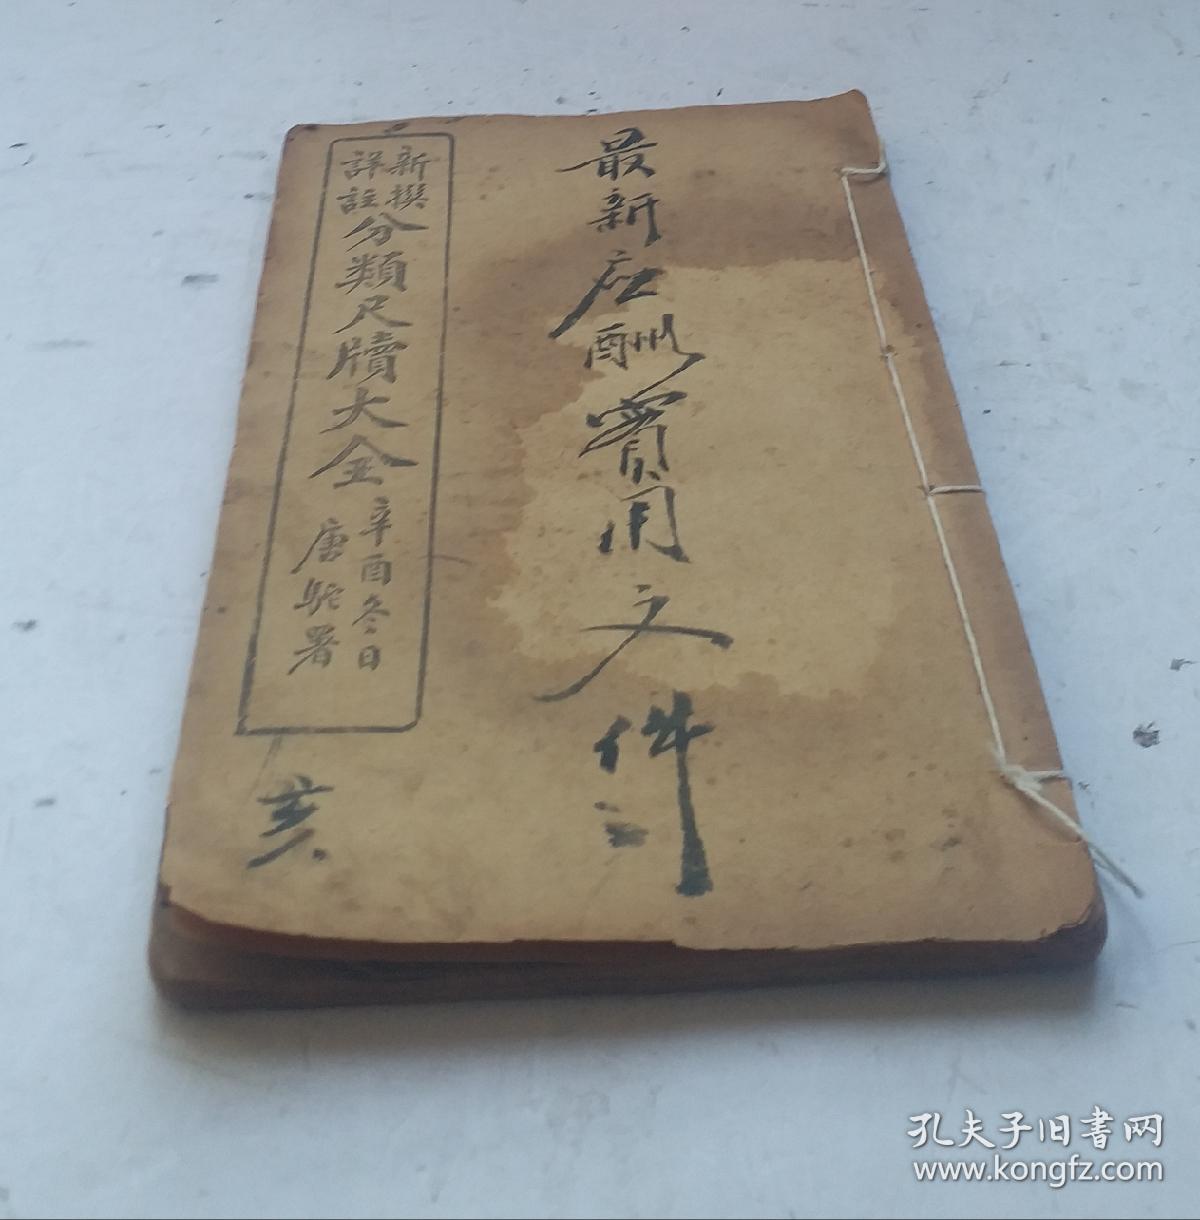 最新应酬實用文件
新撰
詳註
分類尺牘大全
辛酉冬日
唐駝署
亥
孔夫子旧書网
www.kongfz.com